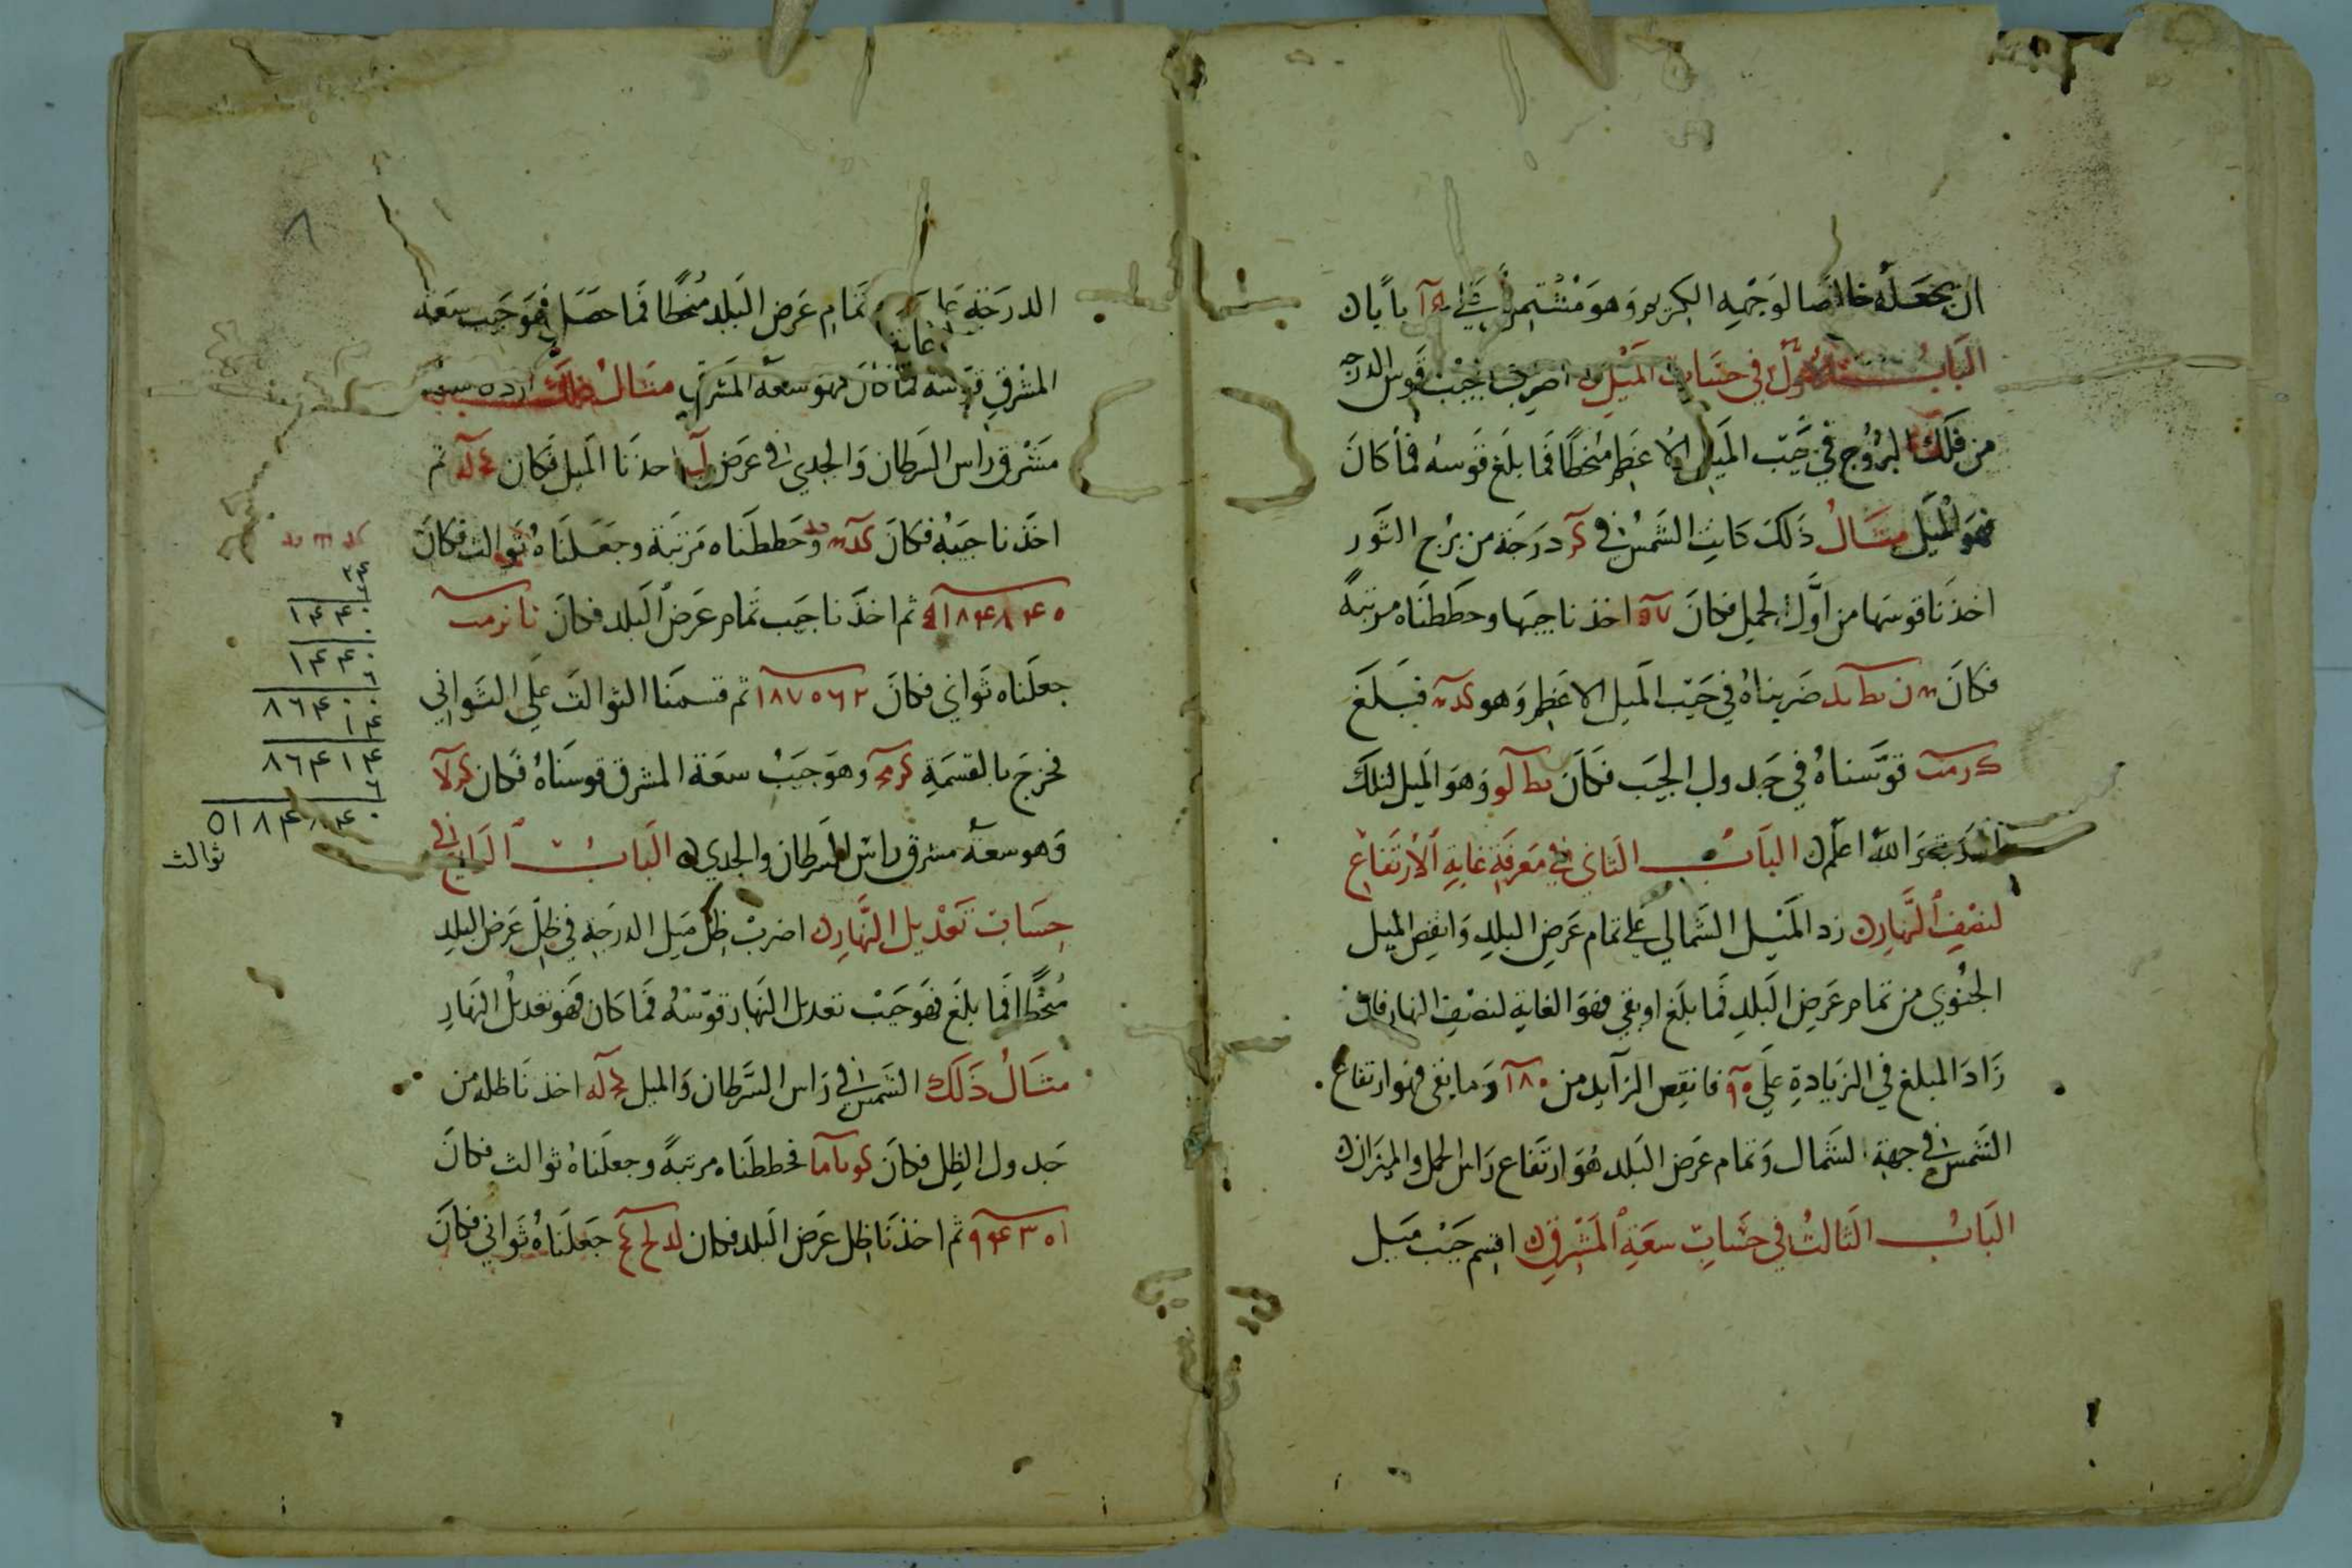 ان يجعله خالصا لوجهه الكريم وهو مشتمل على بابا ن
الباب الاول في حساب الميل اضرب جيب قوس الدرجة
من فلك البروج في جيب الميل الاعظم منحطا فما بلغ قوسه فما كان
فهو الميل مثال ذلك كانت الشمس في كز درجة من برج الثور
اخذنا قوسها من اول الحمل فكان اخذنا جيبها وحططناه مرتبة
فكان ن يط يد ضربناه في جيب الميل الاعظم وهو كد فبلغ
ك ر مب قوسناه في جدول الجيب فكان يط لو وهو الميل لتلك
والله اعلم الباب الثاني في معرفة غاية الارتفاع
لنصف النهار زد الميل الشمالي على تمام عرض البلد وانقص الميل
الجنوبي من تمام عرض البلد فما بلغ او بقي فهو الغاية لنصف النهار فان
زاد المبلغ في الزيادة على ٩٠ فانقص الزايد من ١٨٠ وما بقي فهو ارتفاع
الشمس في جهة الشمال وتمام عرض البلد هو ارتفاع راس الحمل والميزان
الباب الثالث في حساب سعة المشرق اقسم جيب ميل
الدرجة على تمام عرض البلد منحطا فما حصل فهو جيب سعة
غاية
المشرق قوسه فما كان فهو سعة المشرق مثال ذلك اردنا سعة
مشرق راس السرطان والجدي في عرض ل اخذنا الميل فكان كج له ثم
اخذنا جيبه فكان كد وحططناه مرتبة وجعلناه ثوالث فكان
٥١٨٤٨٤٠ ثم اخذنا جيب تمام عرض البلد فكان نا نز مب
جعلناه ثواني فكان ١٨٧٥٦٢ ثم قسمنا الثوالث على الثواني
فخرج بالقسمة وهو جيب سعة المشرق قوسناه فكان كز لا
وهو سعة مشرق راس السرطان والجدي الباب الرابع في
حساب تعديل النهار اضرب ظل ميل الدرجة في ظل عرض البلد
منحطا فما بلغ فهو جيب تعديل النهار قوسه فما كان فهو تعديل النهار
مثال ذلك الشمس في راس السرطان والميل كج له اخذنا ظله من
جدول الظل فكان كو يا ما فحططناه مرتبة وجعلناه ثوالث فكان
٩٤٣٠١ ثم اخذنا ظل عرض البلد فكان لد لح كج جعلناه ثواني فكان
٨
٢٤
٦٠
١٤٤٠
١٤٤٠
٦٠
٨٦٤٠٠
١٤
٨٦٤١٤
٦٠
٥١٨٤٨٤٠
ثوالث